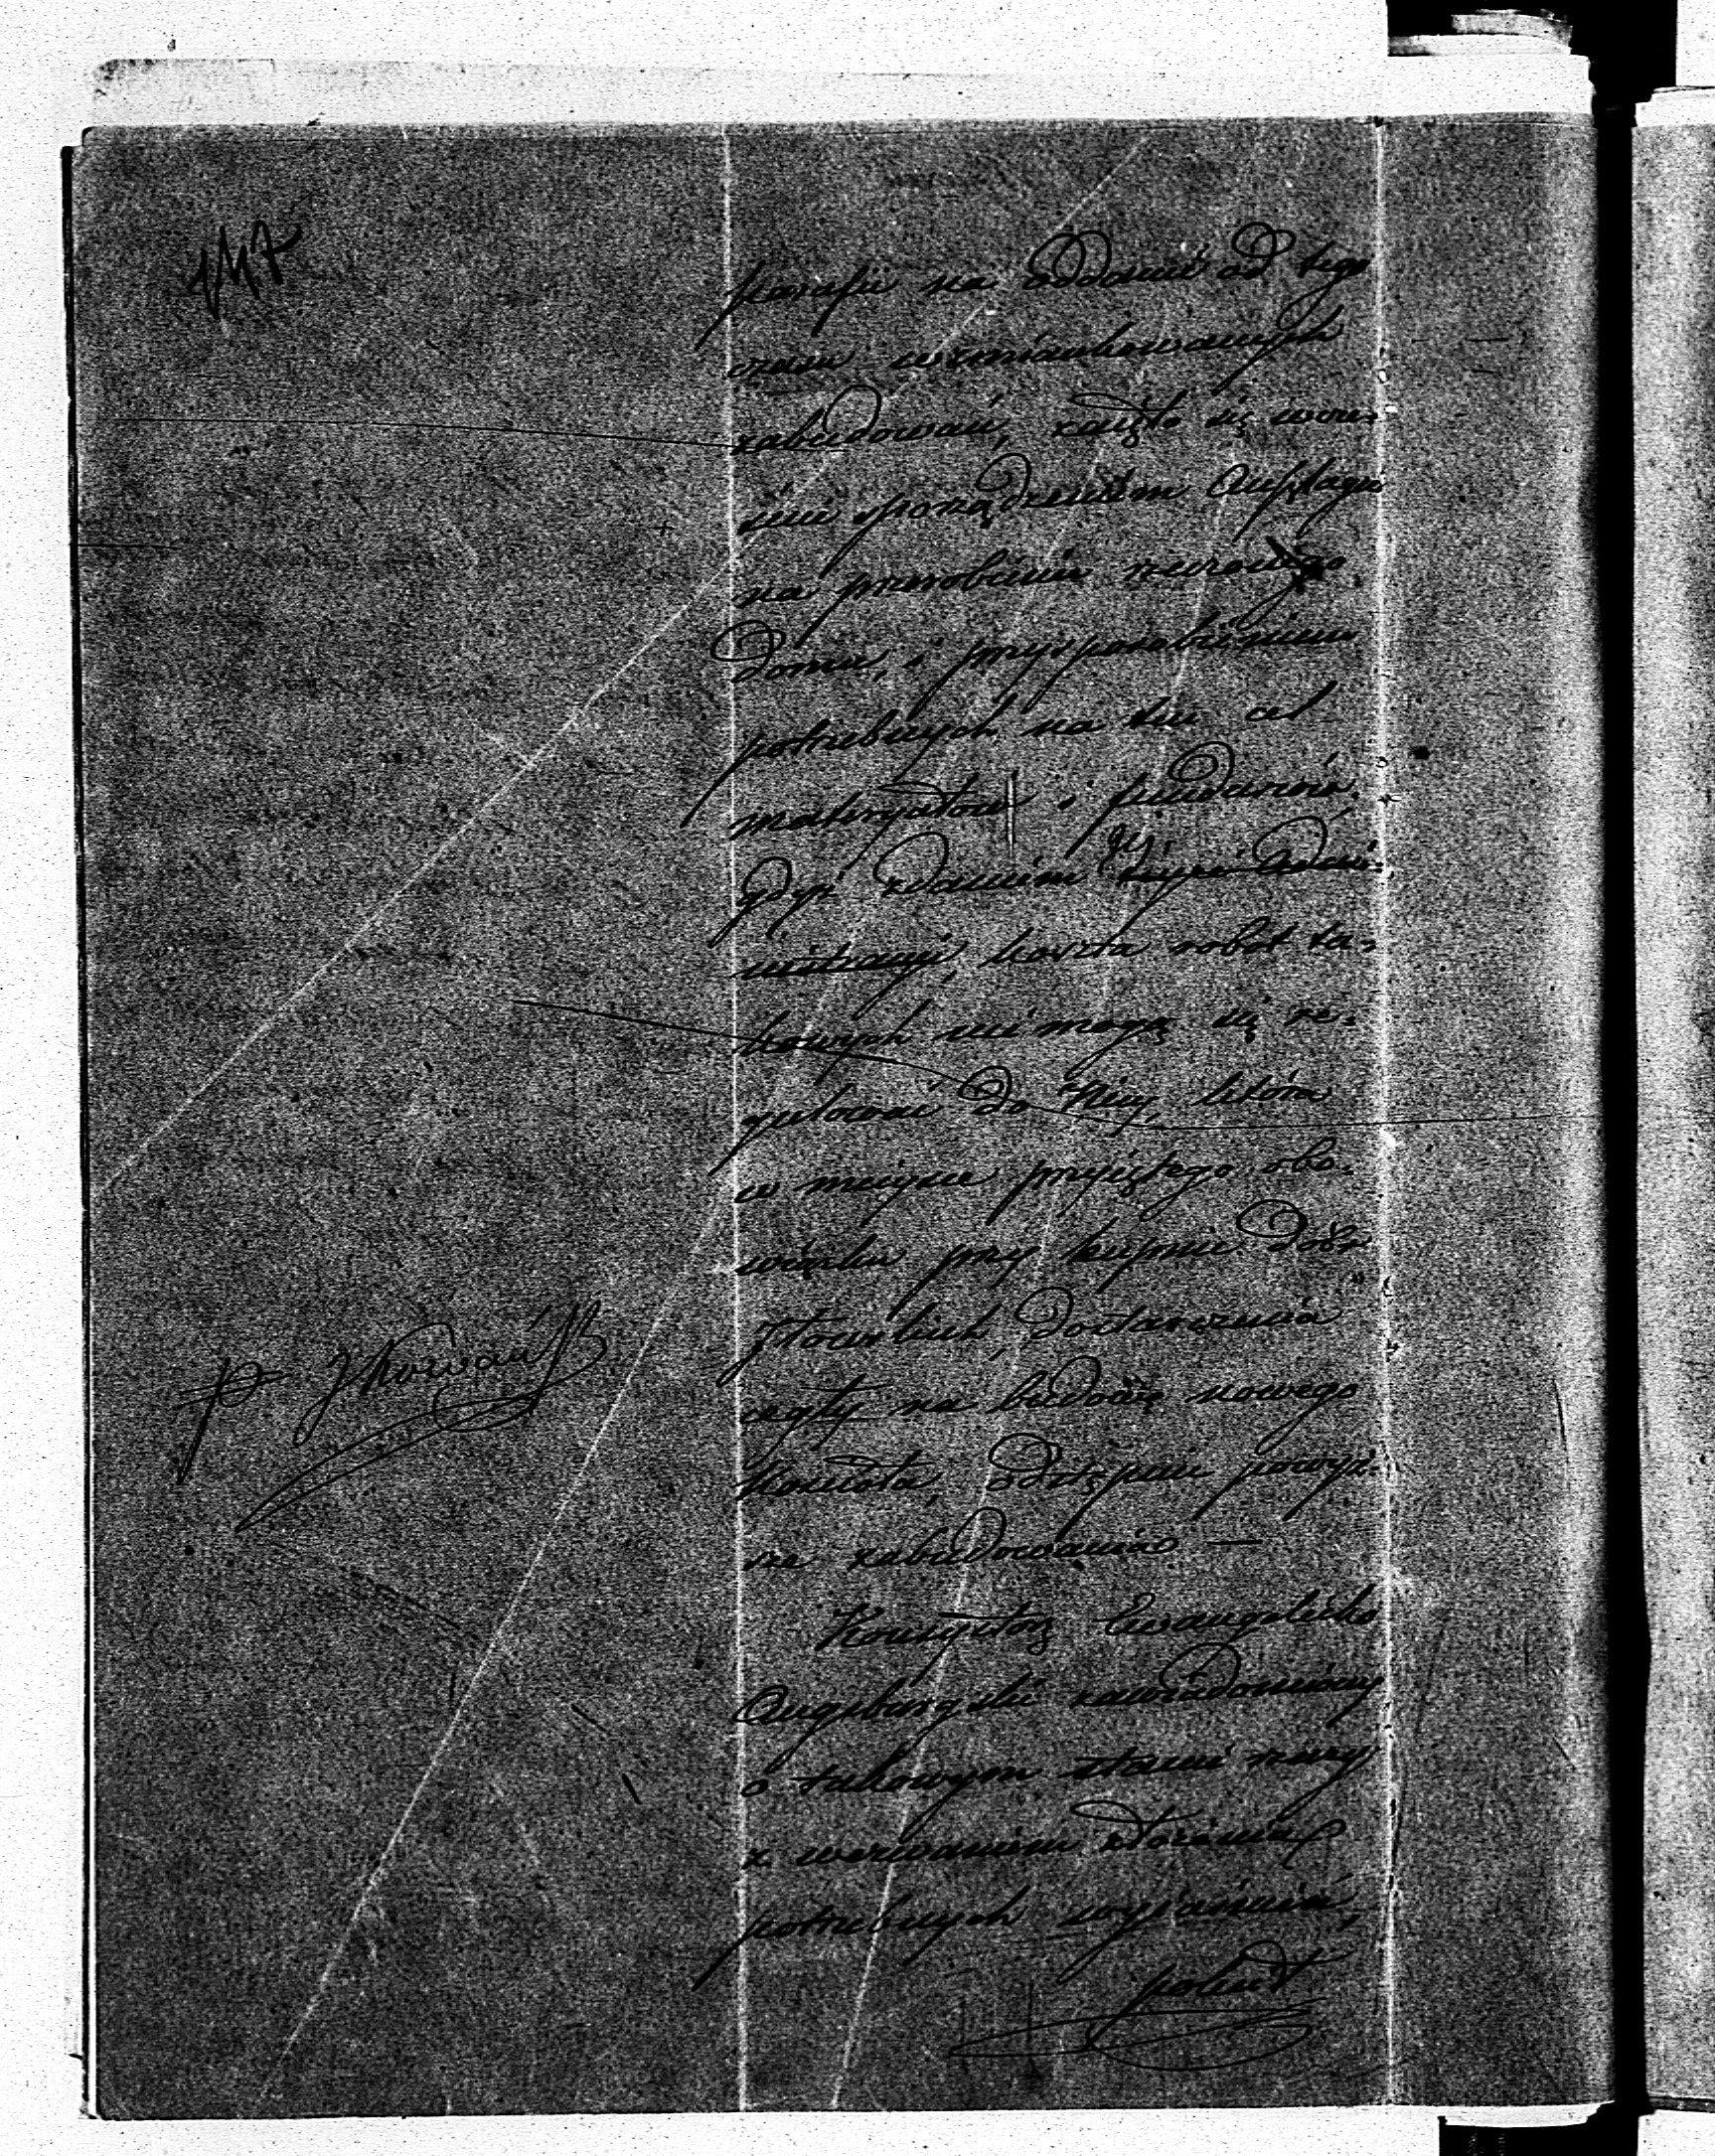 147
parafii na oddanie od tego
czasu wzmiankowanych
zabudowań, zajęto się wcze-
śnie sporządzeniem Anszlagu
na przerobienie rzeczonego
domu, i przysposobieniem
potrzebnych na ten cel
materyałow i funduszów,
gdyż zdaniem jej
koszta robot ta-
kowych nie mogą się re-
gulować do Niey, która
w mieysce przyiętego obo-
wiązku przy kupnie dobr
dostarczenia
cegły na budowę nowego
kościoła, odstąpiła powyż-
sze zabudowania —
Konsystorz Ewangelicko
Augsburgski zawiadomiony
o takowym stanie rzeczy
z wezwaniem złożenia
potrzebnych wyjaśnień,